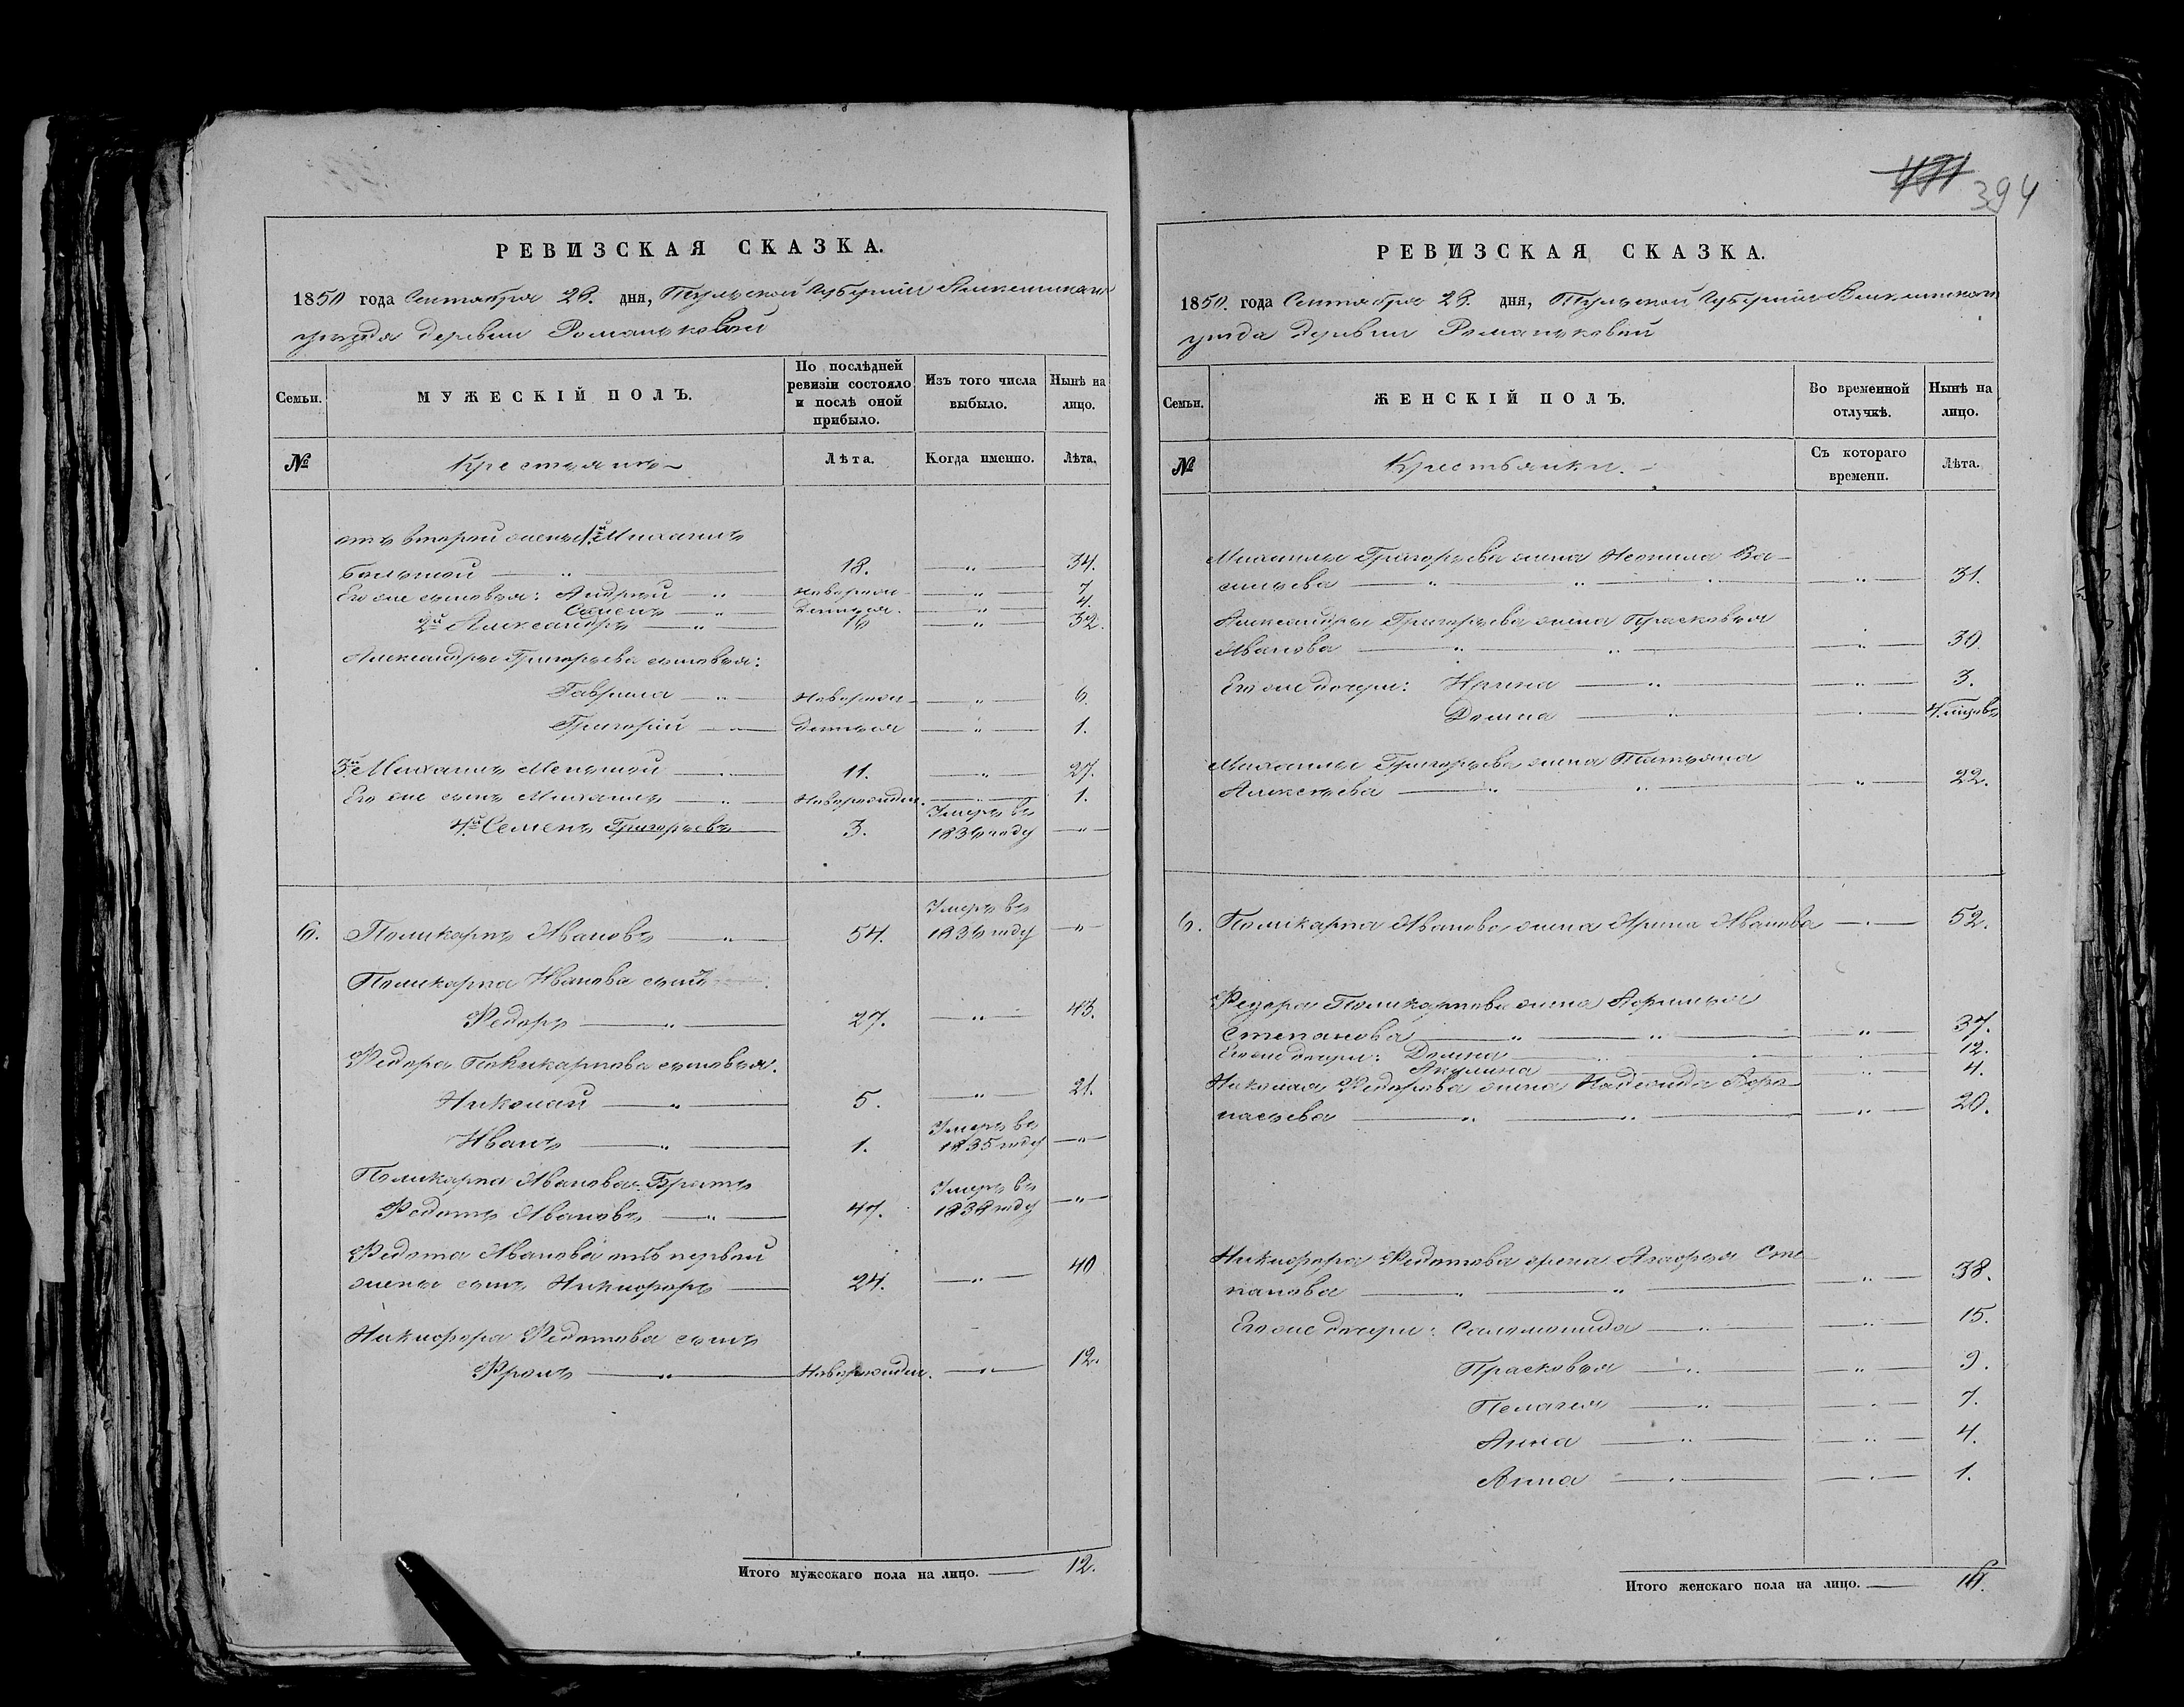 РЕВИЗСКАЯ СКАЗКА.
1850 года Сентября 28. дня, Тульской Губернии Алексинскаго
уѣзда деревни Романьковой
Семьи.
МУЖЕСКІЙ ПОЛЪ.
По послѣдней ревизіи состояло и послѣ оной прибыло.
Изъ того числа выбыло.
Нынѣ на лицо.
№ Крестьянъ Лѣта. Когда именно. Лѣта.
отъ второй жены 1й Михаилъ
Большой — " — 18. — " — 34.
Его же сыновья: Андрей — " новорож — " — 7
Семенъ — " Денныя. — " — 4.
2й Александръ — " 16 — " — 32.
Александры Григорьева сыновья:
Гаврила — " Новорож — " — 6.
Григорій — " — денныя — " — 1.
3й Михаилъ Меньшой — " — 11. — " — 27.
Его же сынъ Михаилъ — " — Новорожден. — " — 1.
4й Семенъ Григорьевъ 3. Умеръ въ 1836 году — " —
6. Поликарпъ Ивановъ — " — 54. Умеръ въ 1836 году — " —
Поликарпа Иванова сынъ
Федоръ — " — 27. — " — 43.
Федора Поликарпова сыновья:
Николай — " — 5. — " — 21.
Иванъ — " — 1. Умеръ въ 1835 году — " —
Поликарпа Иванова Братъ
Федотъ Ивановъ — " — 47. Умеръ въ 1838 году — " —
Федота Иванова отъ первой
жены сынъ Никифоръ — 24. — " — 40
Никифора Федотова сынъ
Фролъ — " — Новорожден. — " — 12.
Итого мужескаго пола на лицо. — 12.
394
РЕВИЗСКАЯ СКАЗКА.
1850. года Сентября 28. дня, Тульской Губерніи Алексинскаго
уѣзда деревни Романьковой
Семьи.
ЖЕНСКІЙ ПОЛЪ.
Во временной отлучкѣ.
Нынѣ на лицо.
№ Крестьянки. — Съ котораго времени. Лѣта.
Михаилы Григорьева жена Неонила Ва-
сильева — " — " — " — 31.
Александры Григорьева жена Прасковья
Иванова — " — " — " — 30.
Его же дочери: Ирина — " — " — 3.
Домна — " — " — 4. мѣсяцевъ
Михаилы Григорьева жена Татьяна
Алексѣева — " — " — " — 22.
6. Поликарпа Иванова жена Арина Иванова — " — 52.
Федора Поликарпова жена
Степанова — " — " — " — 37.
Его же дочери: Домна — " — " — 12.
Акулина — " — 4.
Николая Федорова жена Надежда
— " — " — " — 20.
Никифора Федотова жена Агафья Сте
панова — " — " — " — 38.
Его же дочери: Саломонида — " — " — 15.
Прасковья — " — " — 9.
Пелагея — " — " — 7.
Анна — " — " — 4.
Анна — " — " — 1.
Итого женскаго пола на лицо. —